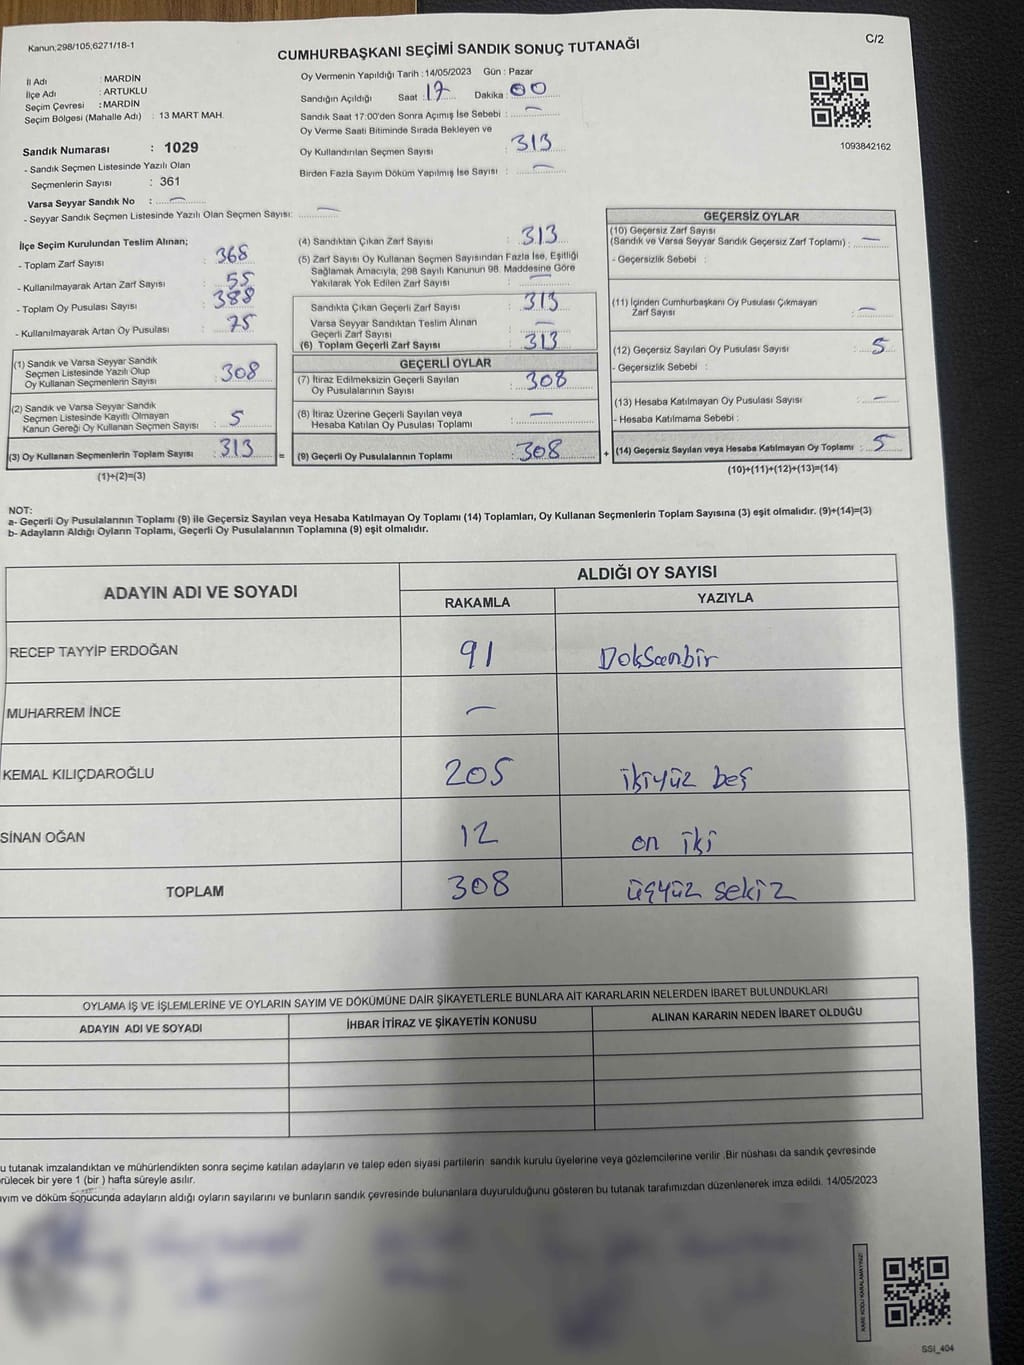 Kanun,298/105,6271/18-1
C/2
CUMHURBAŞKANI SEÇİMİ SANDIK SONUÇ TUTANAĞI
İl Adı : MARDİN
İlçe Adı : ARTUKLU
Seçim Çevresi : MARDİN
Seçim Bölgesi (Mahalle Adı) : 13 MART MAH.
Sandık Numarası : 1029
- Sandık Seçmen Listesinde Yazılı Olan
Seçmenlerin Sayısı : 361
Varsa Seyyar Sandık No : —
- Seyyar Sandık Seçmen Listesinde Yazılı Olan Seçmen Sayısı: —
Oy Vermenin Yapıldığı Tarih : 14/05/2023 Gün : Pazar
Sandığın Açıldığı Saat : 17 Dakika : 00
Sandık Saat 17:00'den Sonra Açımış İse Sebebi : —
Oy Verme Saati Bitiminde Sırada Bekleyen ve
Oy Kullandırılan Seçmen Sayısı : 313
Birden Fazla Sayım Döküm Yapılmış İse Sayısı : —
1093842162
İlçe Seçim Kurulundan Teslim Alınan;
- Toplam Zarf Sayısı : 368
- Kullanılmayarak Artan Zarf Sayısı : 55
- Toplam Oy Pusulası Sayısı : 388
- Kullanılmayarak Artan Oy Pusulası : 75
(1) Sandık ve Varsa Seyyar Sandık
Seçmen Listesinde Yazılı Olup
Oy Kullanan Seçmenlerin Sayısı : 308
(2) Sandık ve Varsa Seyyar Sandık
Seçmen Listesinde Kayıtlı Olmayan
Kanun Gereği Oy Kullanan Seçmen Sayısı : 5
(3) Oy Kullanan Seçmenlerin Toplam Sayısı : 313 =
(1)+(2)=(3)
(4) Sandıktan Çıkan Zarf Sayısı : 313
(5) Zarf Sayısı Oy Kullanan Seçmen Sayısından Fazla İse, Eşitliği
Sağlamak Amacıyla, 298 Sayılı Kanunun 98. Maddesine Göre
Yakılarak Yok Edilen Zarf Sayısı : —
Sandıkta Çıkan Geçerli Zarf Sayısı : 313
Varsa Seyyar Sandıktan Teslim Alınan
Geçerli Zarf Sayısı : —
(6) Toplam Geçerli Zarf Sayısı : 313
GEÇERLİ OYLAR
(7) İtiraz Edilmeksizin Geçerli Sayılan
Oy Pusulalarının Sayısı : 308
(8) İtiraz Üzerine Geçerli Sayılan veya
Hesaba Katılan Oy Pusulası Toplamı : —
(9) Geçerli Oy Pusulalarının Toplamı : 308 +
GEÇERSİZ OYLAR
(10) Geçersiz Zarf Sayısı
(Sandık ve Varsa Seyyar Sandık Geçersiz Zarf Toplamı) : —
- Geçersizlik Sebebi :
(11) İçinden Cumhurbaşkanı Oy Pusulası Çıkmayan
Zarf Sayısı : —
(12) Geçersiz Sayılan Oy Pusulası Sayısı : 5
- Geçersizlik Sebebi :
(13) Hesaba Katılmayan Oy Pusulası Sayısı : —
- Hesaba Katılmama Sebebi :
(14) Geçersiz Sayılan veya Hesaba Katılmayan Oy Toplamı : 5
(10)+(11)+(12)+(13)=(14)
NOT:
a- Geçerli Oy Pusulalarının Toplamı (9) ile Geçersiz Sayılan veya Hesaba Katılmayan Oy Toplamı (14) Toplamları, Oy Kullanan Seçmenlerin Toplam Sayısına (3) eşit olmalıdır. (9)+(14)=(3)
b- Adayların Aldığı Oyların Toplamı, Geçerli Oy Pusulalarının Toplamına (9) eşit olmalıdır.
ADAYIN ADI VE SOYADI
ALDIĞI OY SAYISI
RAKAMLA YAZIYLA
RECEP TAYYİP ERDOĞAN 91 Doksanbir
MUHARREM İNCE —
KEMAL KILIÇDAROĞLU 205 ikiyüz beş
SİNAN OĞAN 12 on iki
TOPLAM 308 üçyüz sekiz
OYLAMA İŞ VE İŞLEMLERİNE VE OYLARIN SAYIM VE DÖKÜMÜNE DAİR ŞİKAYETLERLE BUNLARA AİT KARARLARIN NELERDEN İBARET BULUNDUKLARI
ADAYIN ADI VE SOYADI İHBAR İTİRAZ VE ŞİKAYETİN KONUSU ALINAN KARARIN NEDEN İBARET OLDUĞU
u tutanak imzalandıktan ve mühürlendikten sonra seçime katılan adayların ve talep eden siyasi partilerin sandık kurulu üyelerine veya gözlemcilerine verilir .Bir nüshası da sandık çevresinde
rülecek bir yere 1 (bir ) hafta süreyle asılır.
ayım ve döküm sonucunda adayların aldığı oyların sayılarını ve bunların sandık çevresinde bulunanlara duyurulduğunu gösteren bu tutanak tarafımızdan düzenlenerek imza edildi. 14/05/2023
KARE KODU KARALAMAYINIZ!
SSI_404